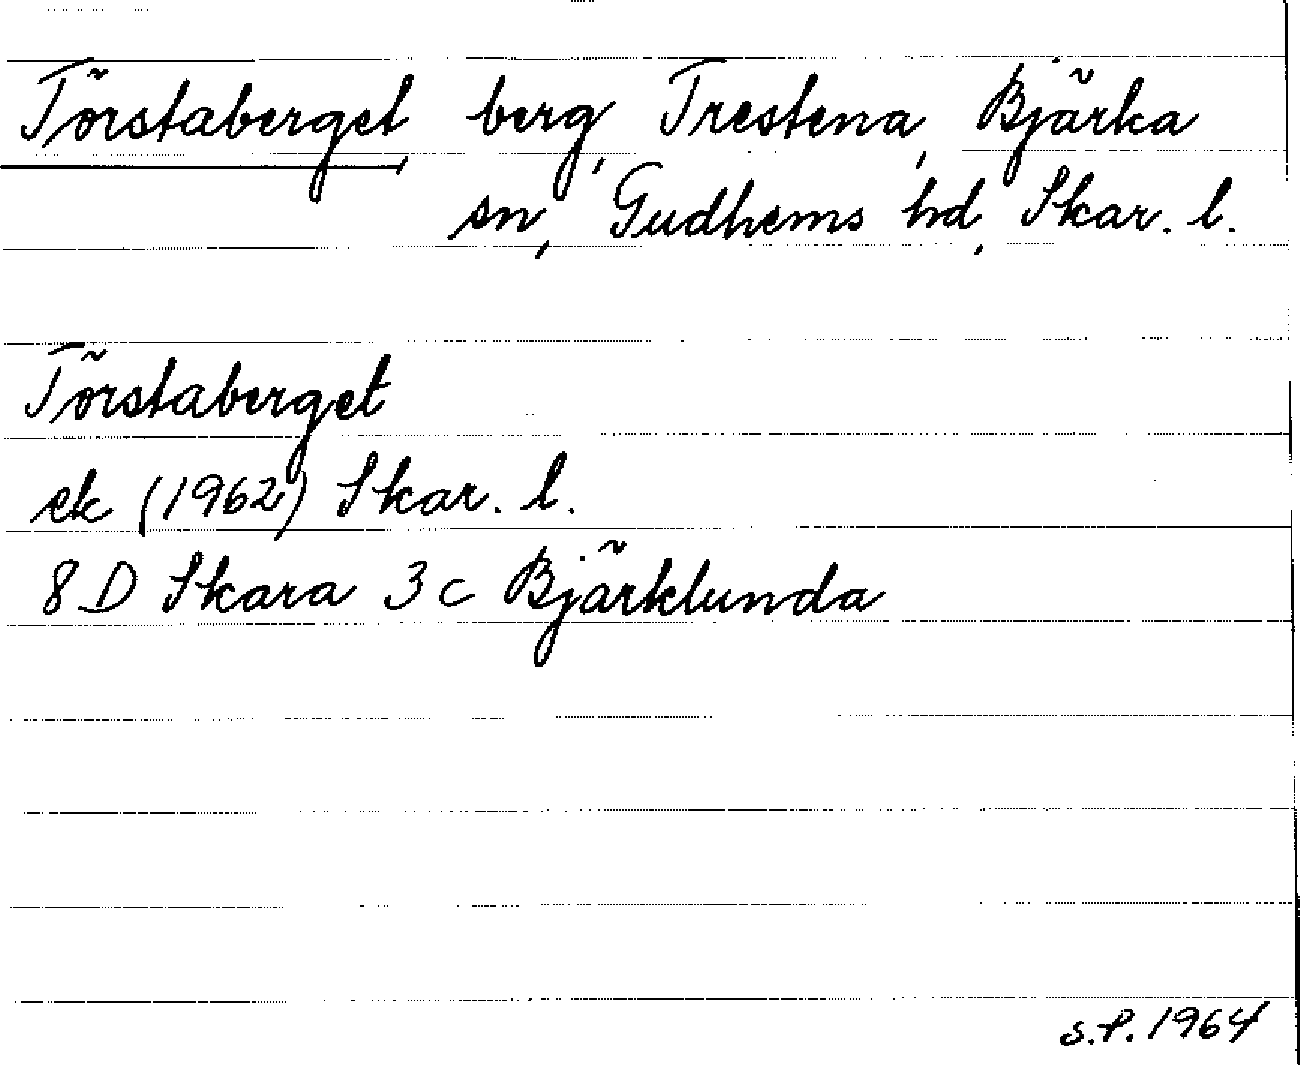 Törstaberget, berg, Trestena, Bjärka
sn, Gudhems hd, Skar. l.
Törstaberget
ek (1962) Skar. l.
8 D Skara 3 c Bjärklunda
S.P. 1964